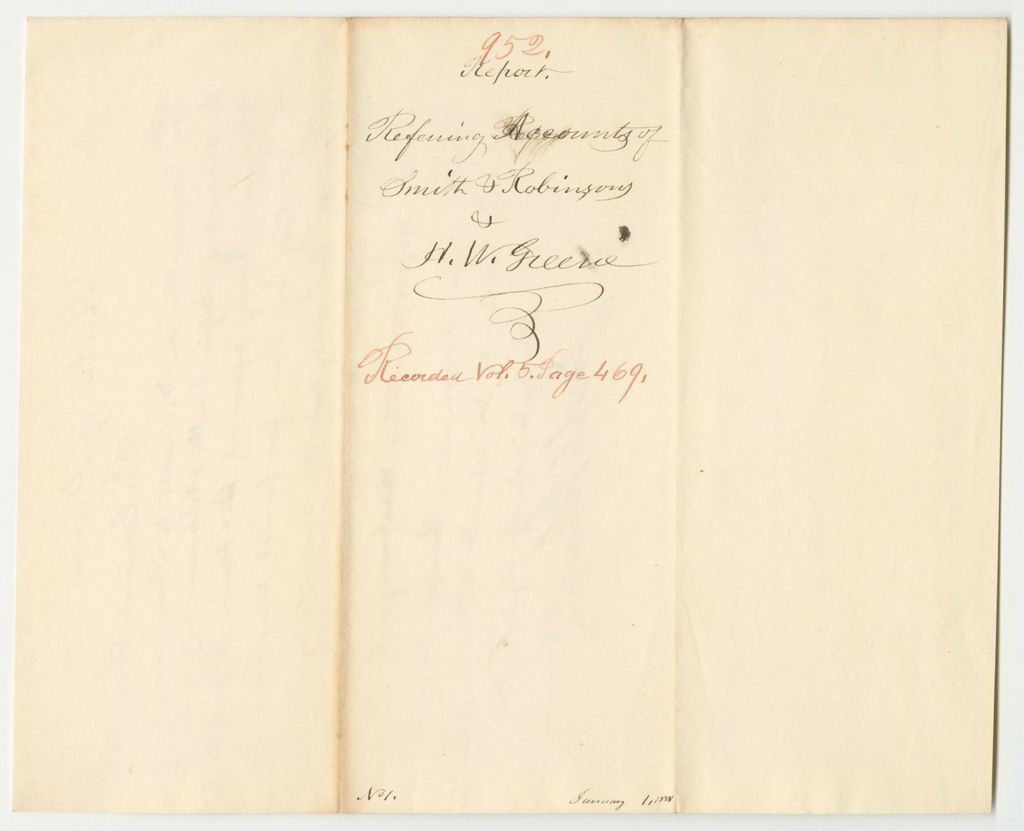 952.
Report.
Refering Accounts of
Smith & Robinsons
&
H. W. Greene
Recorded Vol. 5. Page 469.
No 1.
January 1,